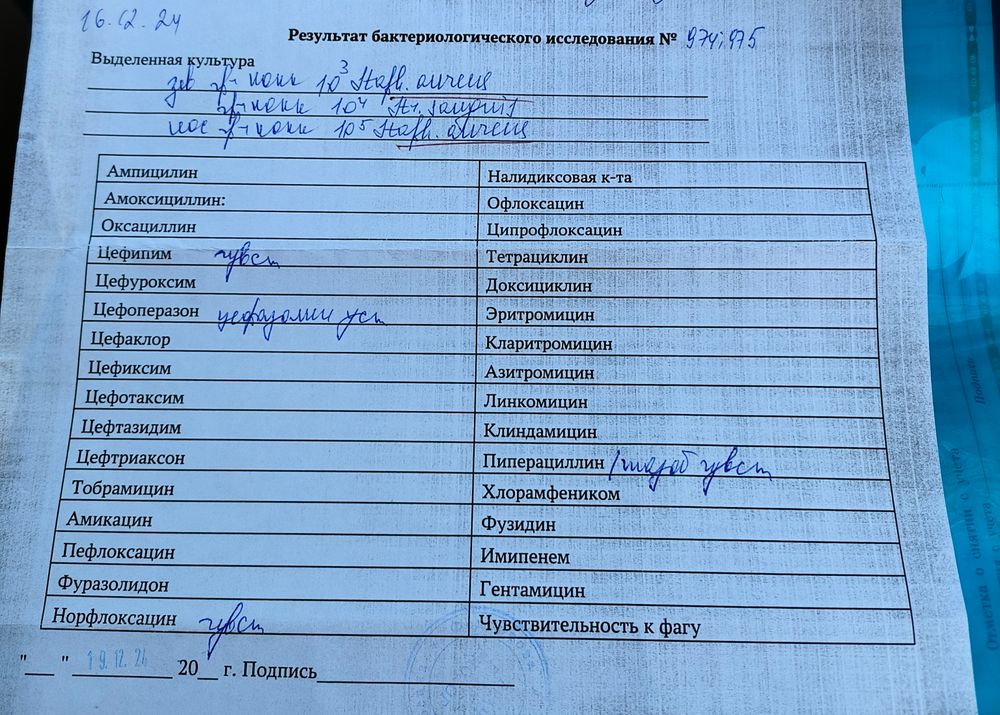 16.12.24
Результат бактериологического исследования № 974; 975
Выделенная культура
зев гр+ кокки 10³ Staph. aureus
гр+ кокки 10⁴ Str. sanguis
нос гр+ кокки 10⁵ Staph. aureus
Ампицилин
Налидиксовая к-та
Амоксициллин:
Офлоксацин
Оксациллин
Ципрофлоксацин
Цефипим чувст
Тетрациклин
Цефуроксим
Доксициклин
Цефоперазон цефазолин уст
Эритромицин
Цефаклор
Кларитромицин
Цефиксим
Азитромицин
Цефотаксим
Линкомицин
Цефтазидим
Клиндамицин
Цефтриаксон
Пиперациллин /тазоб чувст
Тобрамицин
Хлорамфеником
Амикацин
Фузидин
Пефлоксацин
Имипенем
Фуразолидон
Гентамицин
Норфлоксацин чувст
Чувствительность к фагу
"__ " 19.12.24 20__ г. Подпись
Отметка о снятии с учета
Подпись